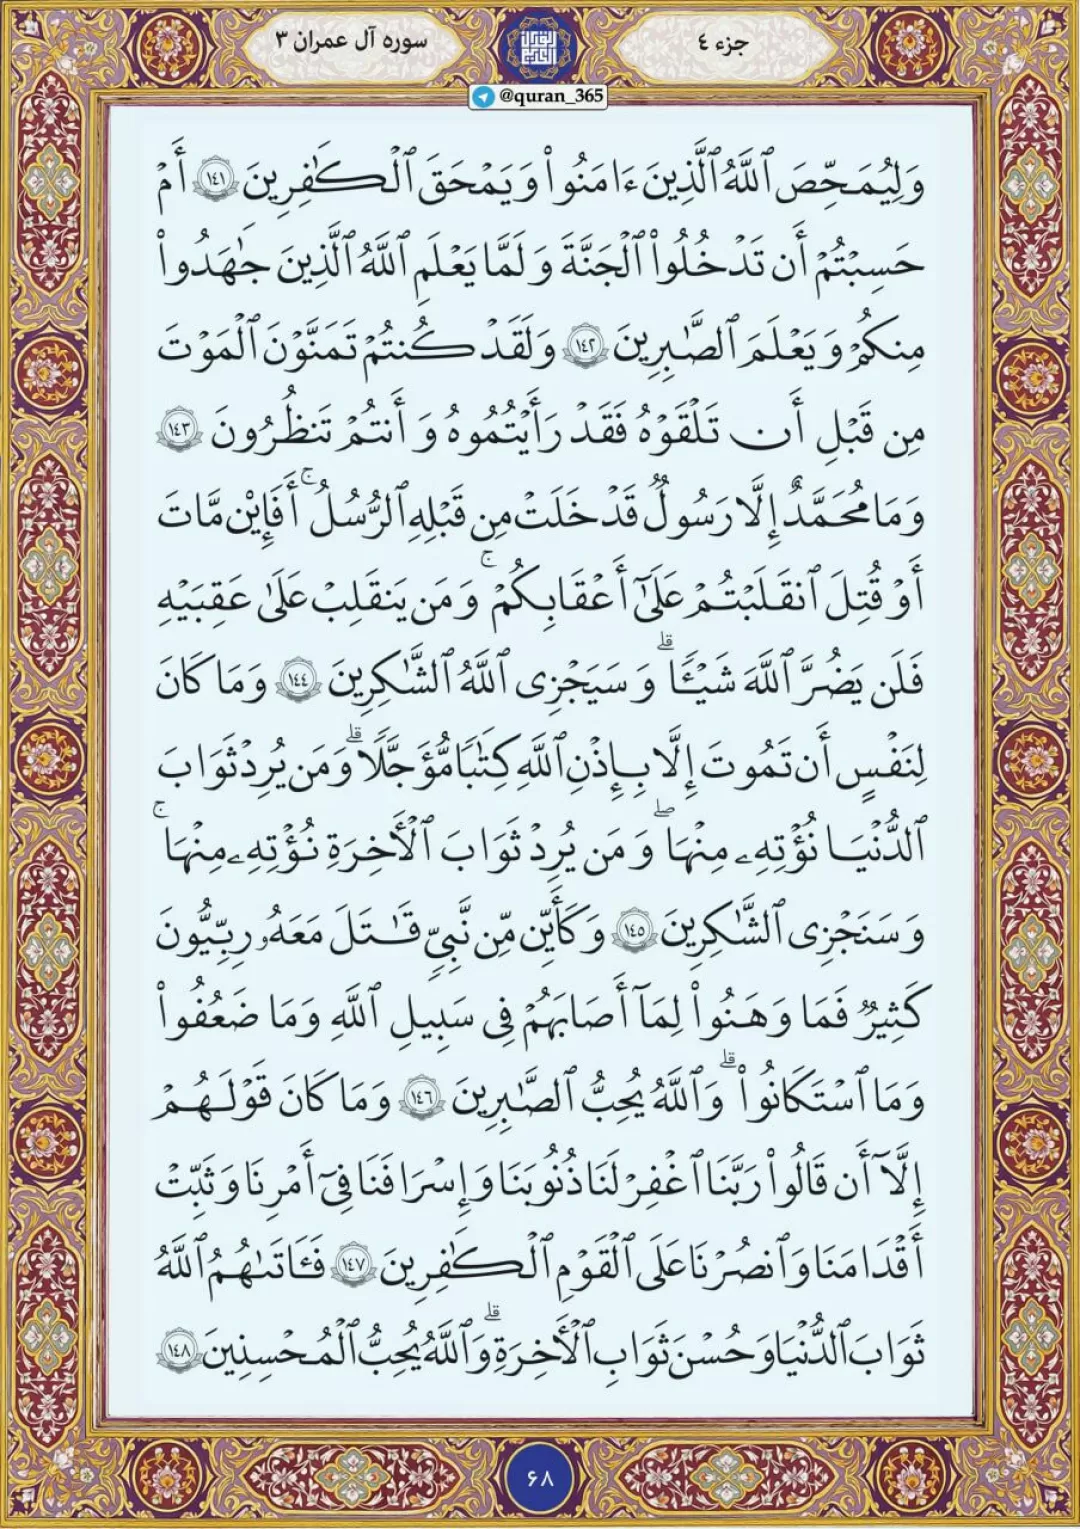 جزء ٤
سوره آل عمران ٣
@quran_365
وَلِيُمَحِّصَ ٱللَّهُ ٱلَّذِينَ ءَامَنُوا۟ وَيَمْحَقَ ٱلْكَـٰفِرِينَ ١٤١ أَمْ
حَسِبْتُمْ أَن تَدْخُلُوا۟ ٱلْجَنَّةَ وَلَمَّا يَعْلَمِ ٱللَّهُ ٱلَّذِينَ جَـٰهَدُوا۟
مِنكُمْ وَيَعْلَمَ ٱلصَّـٰبِرِينَ ١٤٢ وَلَقَدْ كُنتُمْ تَمَنَّوْنَ ٱلْمَوْتَ
مِن قَبْلِ أَن تَلْقَوْهُ فَقَدْ رَأَيْتُمُوهُ وَأَنتُمْ تَنظُرُونَ ١٤٣
وَمَا مُحَمَّدٌ إِلَّا رَسُولٌ قَدْ خَلَتْ مِن قَبْلِهِ ٱلرُّسُلُ ۚ أَفَإِي۟ن مَّاتَ
أَوْ قُتِلَ ٱنقَلَبْتُمْ عَلَىٰٓ أَعْقَـٰبِكُمْ ۚ وَمَن يَنقَلِبْ عَلَىٰ عَقِبَيْهِ
فَلَن يَضُرَّ ٱللَّهَ شَيْـًٔا ۗ وَسَيَجْزِى ٱللَّهُ ٱلشَّـٰكِرِينَ ١٤٤ وَمَا كَانَ
لِنَفْسٍ أَن تَمُوتَ إِلَّا بِإِذْنِ ٱللَّهِ كِتَـٰبًا مُّؤَجَّلًا ۗ وَمَن يُرِدْ ثَوَابَ
ٱلدُّنْيَا نُؤْتِهِۦ مِنْهَا ۖ وَمَن يُرِدْ ثَوَابَ ٱلْأَخِرَةِ نُؤْتِهِۦ مِنْهَا ۚ
وَسَنَجْزِى ٱلشَّـٰكِرِينَ ١٤٥ وَكَأَيِّن مِّن نَّبِىٍّ قَـٰتَلَ مَعَهُۥ رِبِّيُّونَ
كَثِيرٌ فَمَا وَهَنُوا۟ لِمَآ أَصَابَهُمْ فِى سَبِيلِ ٱللَّهِ وَمَا ضَعُفُوا۟
وَمَا ٱسْتَكَانُوا۟ ۗ وَٱللَّهُ يُحِبُّ ٱلصَّـٰبِرِينَ ١٤٦ وَمَا كَانَ قَوْلَهُمْ
إِلَّآ أَن قَالُوا۟ رَبَّنَا ٱغْفِرْ لَنَا ذُنُوبَنَا وَإِسْرَافَنَا فِىٓ أَمْرِنَا وَثَبِّتْ
أَقْدَامَنَا وَٱنصُرْنَا عَلَى ٱلْقَوْمِ ٱلْكَـٰفِرِينَ ١٤٧ فَـَٔاتَىٰهُمُ ٱللَّهُ
ثَوَابَ ٱلدُّنْيَا وَحُسْنَ ثَوَابِ ٱلْأَخِرَةِ ۗ وَٱللَّهُ يُحِبُّ ٱلْمُحْسِنِينَ ١٤٨
٦٨